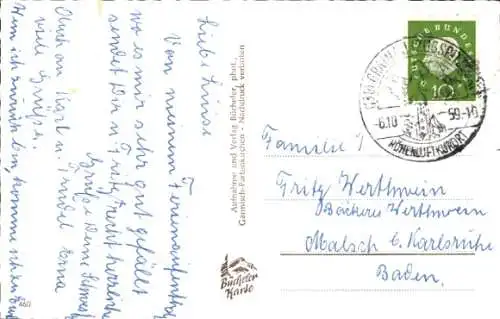 Liebe Luise
Von meinem Ferienaufenthalt
wo es mir sehr gut gefällt
sendet Dir u. Fritz recht herzliche
Grüße Deine
Erna
Auch an
viele Grüße.
Wenn ich zurück bin, komme ich
Aufnahme und Verlag Bücheler, phot.,
Garmisch-Partenkirchen - Nachdruck verboten
Bücheler
Karte
DEUTSCHE BUNDESPOST
10
-6.10
59-10
HÖHENLUFTKURORT
Familie
Fritz Werthwein
Bäckerei Werthwein
Malsch b. Karlsruhe
Baden.